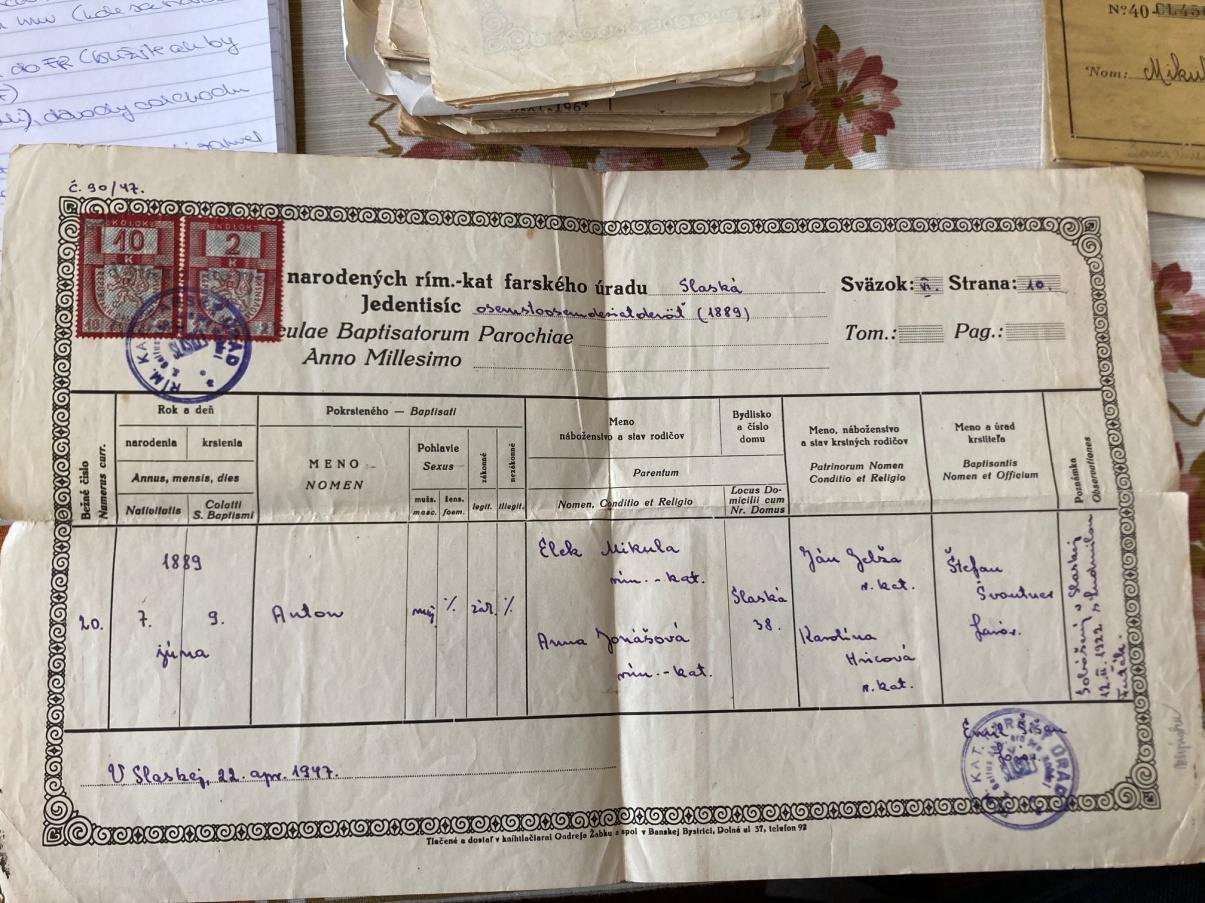 do FR
dôvody odchodu
1964
Nº40
Nom: Miku
č. 90/47.
KOLOK
10
K
KOLOK
2
K
narodených rím.-kat farského úradu Slaská
Sväzok: VI. Strana: 10.
Jedentisíc osemstoosemdesiatdeväť (1889)
culae Baptisatorum Parochiae
Tom.: Pag.:
Anno Millesimo
RÍM. KAT. ÚRAD
Bežné číslo
Namerus curr.
Rok a deň
narodenia
krstenia
Annus, mensis, dies
Nativitatis
Colatti
S. Baptismi
Pokrsteného — Baptisati
MENO
NOMEN
Pohlavie
Sexus
mužs.
masc.
žens.
foem.
zákonné
legit.
nezákonné
illegit.
Meno
náboženstvo a stav rodičov
Parentum
Nomen, Conditio et Religio
Bydlisko
a číslo
domu
Locus Do-
micilii cum
Nr. Domus
Meno, náboženstvo
a stav krstných rodičov
Patrinorum Nomen
Conditio et Religio
Meno a úrad
krstiteľa
Baptisantis
Nomen et Officium
Poznámka
Observationes
20.
1889
7. 9.
júna
Anton
muž
%
zák.
%
Elek Mikula
rím.-kat.
Anna Jonášová
rím.-kat.
Slaská
38.
Ján
r. kat.
Karolína
Hricová
r. kat.
Štefan
farár.
Sobášený v Slaskej
12.II.1922 s Ludmilou
V Slaskej, 22. apr. 1947.
Emil
KAT. FARSKÝ ÚRAD
Tlačené a dostať v kníhtlačiarni Ondreja Žabku a spol v Banskej Bystrici, Dolná ul 37, telefon 92